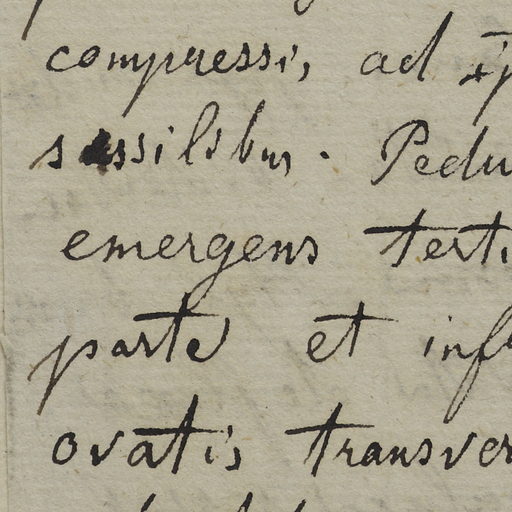 compressi, ad ip
sessilibus. Pedu
emergens terti
parte et inf
ovatis transver